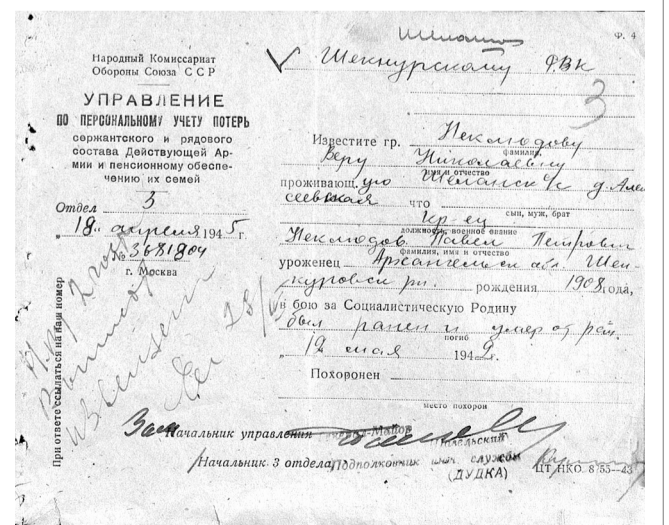 Ф. 4
Народный Комиссариат
Обороны Союза ССР
УПРАВЛЕНИЕ
ПО ПЕРСОНАЛЬНОМУ УЧЕТУ ПОТЕРЬ
сержантского и рядового
состава Действующей Ар-
мии и пенсионному обеспе-
чению их семей
Отдел 3
"18" апреля 1945 г.
№ 3681804
г. Москва
При ответе ссылаться на наш номер
извещение
Шенкурскому РВК
3
Известите гр. Неклюдову
фамилия
Веру Николаевну
имя и отчество
проживающ. ую д. Алек
сеевская что
сын, муж, брат
кр-ец
должность, военное звание
Неклюдов Павел Петрович
фамилия, имя и отчество
уроженец Архангельск обл. Шен-
курский рн. рождения 1908 года,
в бою за Социалистическую Родину
был ранен и умер от ран.
погиб
"12" мая 1942 г.
Похоронен
место похорон
Зам Начальник управления генерал-Майор
Начальник 3 отдела Подполковник инт. службы
(ДУДКА)
ЦТ НКО 8755—43